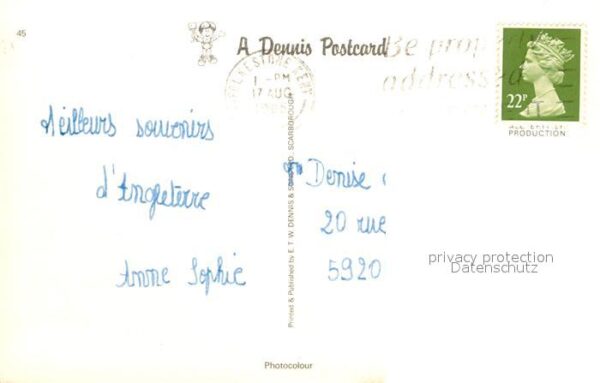 45
A Dennis Postcard
Be prop
addressed
1 - PM
17 AUG
22P
PRODUCTION
Meilleurs souvenirs
d'Angleterre
Anne Sophie
Denise
20 rue
5920
Printed & Published by E. T. W. DENNIS & SONS LTD. SCARBOROUGH
privacy protection
Datenschutz
Photocolour